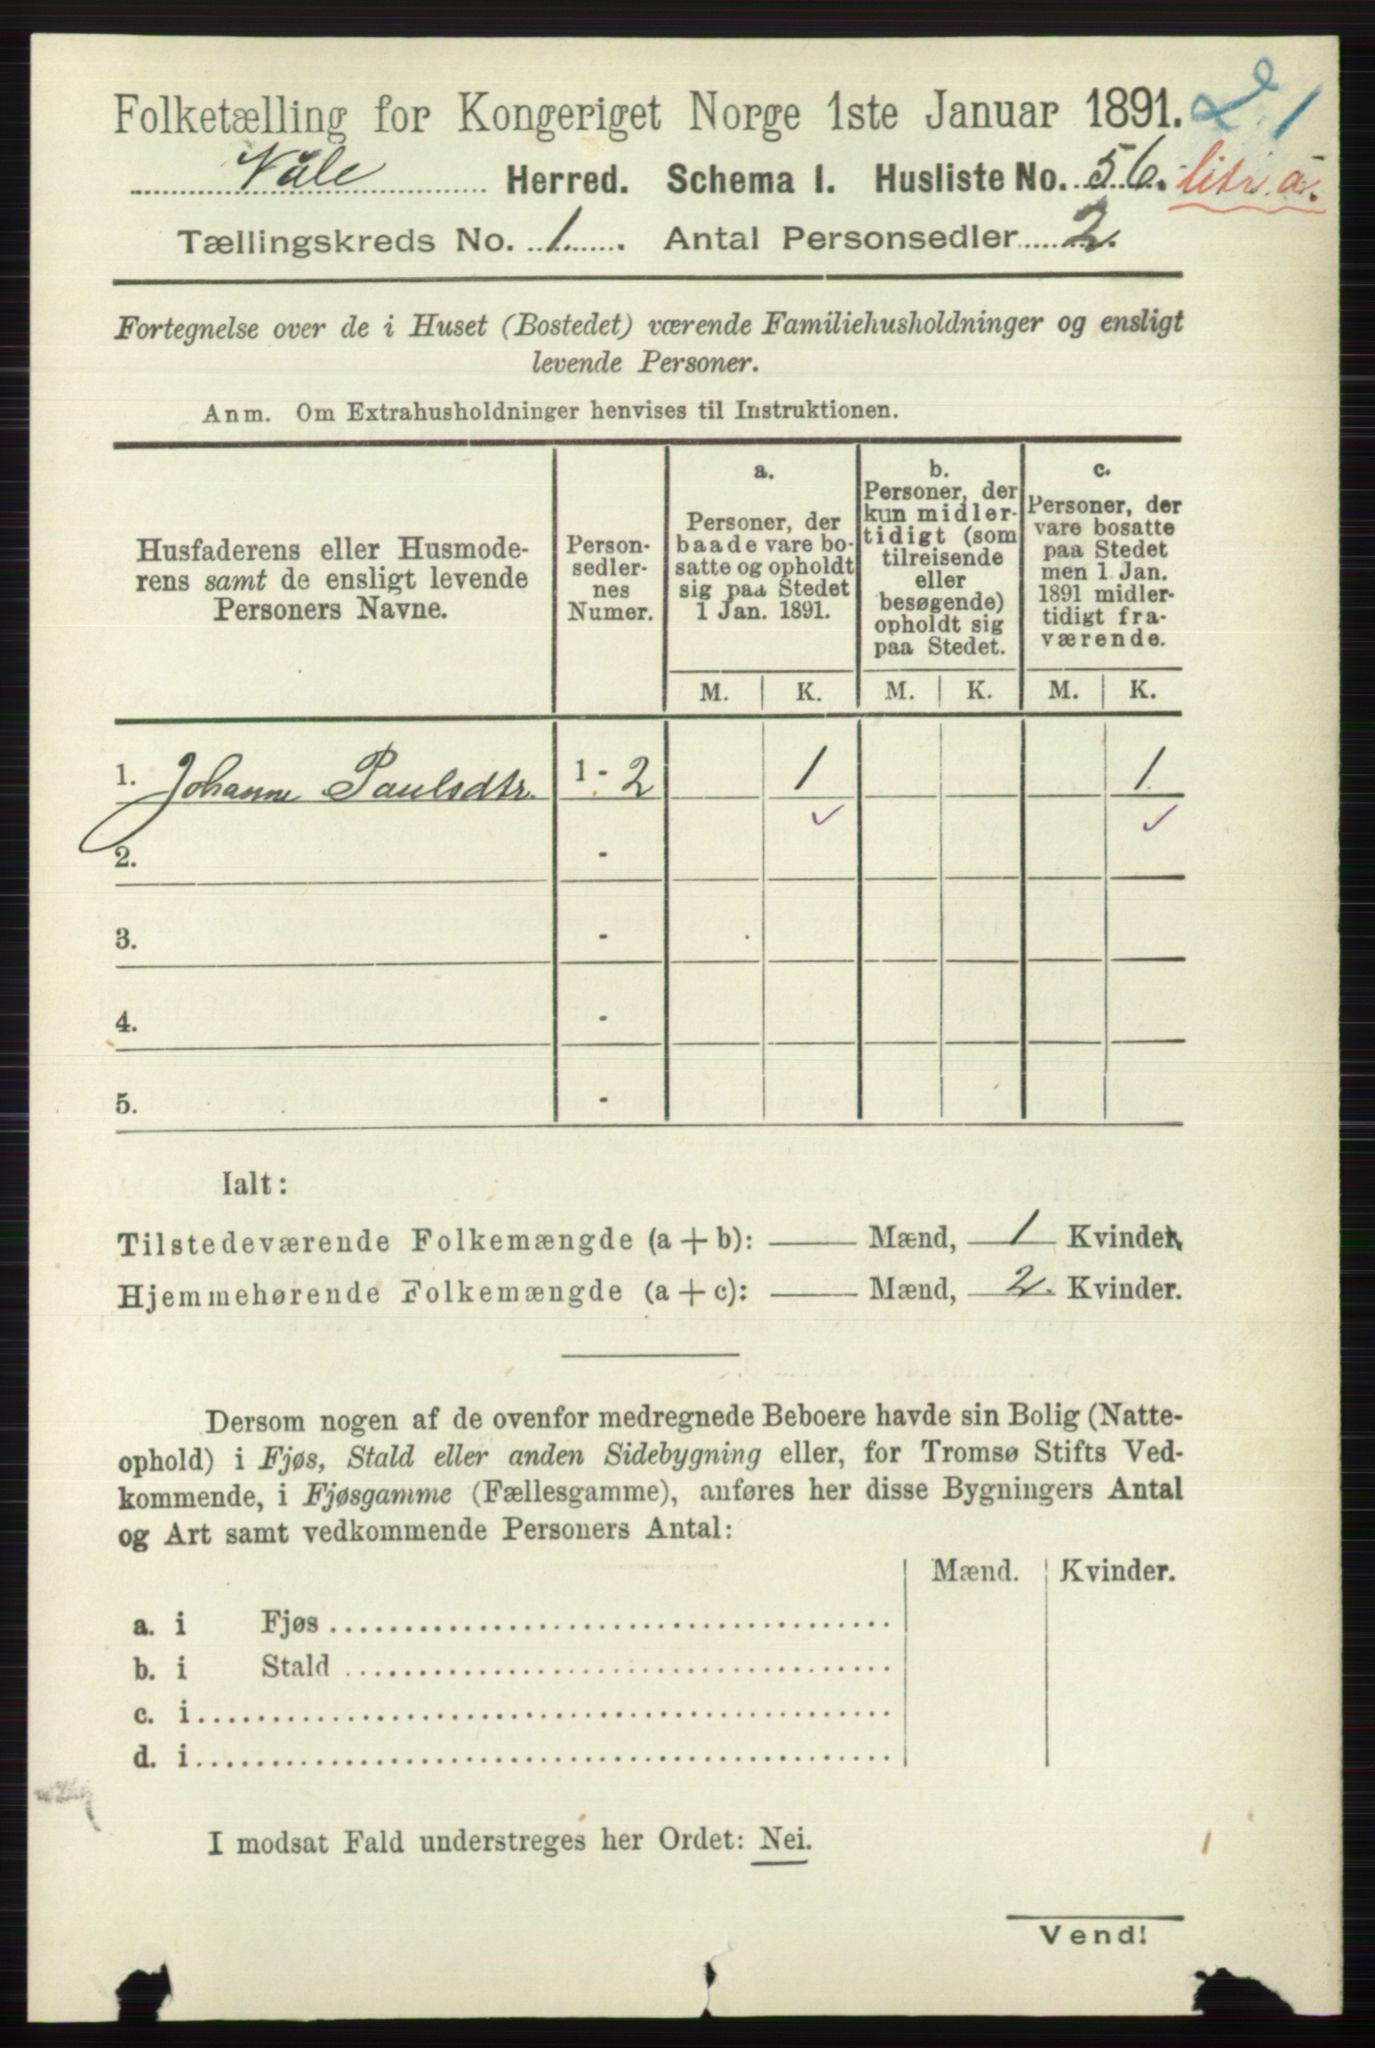 Folketælling for Kongeriget Norge 1ste Januar 1891. 2 1
Våle Herred. Schema I. Husliste No. 56. litr. a.
Tællingskreds No. 1. Antal Personsedler 2.
Fortegnelse over de i Huset (Bostedet) værende Familiehusholdninger og ensligt
levende Personer.
Anm. Om Extrahusholdninger henvises til Instruktionen.
Husfaderens eller Husmode-
rens samt de ensligt levende
Personers Navne.
Person-
sedler-
nes
Numer.
a.
Personer, der
baade vare bo-
satte og opholdt
sig paa Stedet
1 Jan. 1891.
b.
Personer, der
kun midler-
tidigt (som
tilreisende
eller
besøgende)
opholdt sig
paa Stedet.
c.
Personer, der
vare bosatte
paa Stedet
men 1 Jan.
1891 midler-
tidigt fra-
værende.
M. K. M. K. M. K.
1. Johanne Paulsdtr. 1 - 2 1 1
2. -
3. -
4. -
5. -
Ialt:
Tilstedeværende Folkemængde (a + b): — Mænd, 1 Kvinder.
Hjemmehørende Folkemængde (a + c): — Mænd, 2. Kvinder.
Dersom nogen af de ovenfor medregnede Beboere havde sin Bolig (Natte-
ophold) i Fjøs, Stald eller anden Sidebygning eller, for Tromsø Stifts Ved-
kommende, i Fjøsgamme (Fællesgamme), anføres her disse Bygningers Antal
og Art samt vedkommende Personers Antal:
Mænd. Kvinder.
a. i Fjøs
b. i Stald
c. i
d. i
I modsat Fald understreges her Ordet: Nei.
Vend!